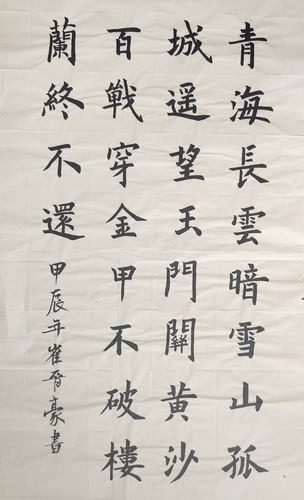 青海長雲暗雪山孤
城遥望玉門關黄沙
百戰穿金甲不破樓
蘭終不還
甲辰年崔晉豪書